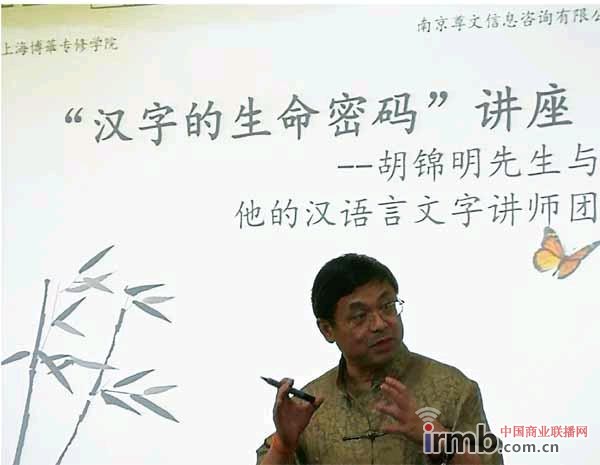 上海博华专修学院
南京尊文信息咨询有限公
“汉字的生命密码”讲座
--胡锦明先生与
他的汉语言文字讲师团
irmb 中国商业联播网
.com.cn